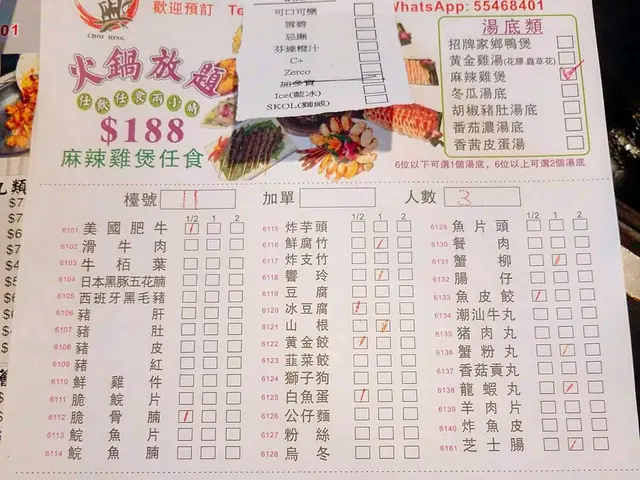 CHOI HING
歡迎預訂 Te
WhatsApp: 55468401
01
可口可樂
雪碧
忌廉
芬達橙汁
C+
Zerco
加多寶
Ice(藍冰)
SKOL(獅威)
火鍋放題
任飲任食兩小時
$188
麻辣雞煲任食
湯底類
招牌家鄉鴨煲
黃金雞湯(花膠蟲草花)
麻辣雞煲
冬瓜湯底
胡椒豬肚湯底
番茄濃湯底
香茜皮蛋湯
6位以下可選1個湯底，6位以上可選2個湯底
檯號 11 加單 人數 3
1/2 1 2
6101 美國肥牛
6102 滑牛肉
6103 牛栢葉
6104 日本黑豚五花腩
6105 西班牙黑毛豬
6106 豬肝
6107 豬肚
6108 豬皮
6109 豬紅
6110 鮮雞件
6111 脆鯇片
6112 脆骨腩
6113 鯇魚片
6114 鯇魚腩
1/2 1 2
6115 炸芋頭
6116 鮮腐竹
6117 炸支竹
6118 響玲
6119 豆腐
6120 冰豆腐
6121 山根
6122 黃金餃
6123 韮菜餃
6124 獅子狗
6125 白魚蛋
6126 公仔麵
6127 粉絲
6128 烏冬
1/2 1 2
6129 魚片頭
6130 餐肉
6131 蟹柳
6132 腸仔
6133 魚皮餃
6134 潮汕牛丸
6135 豬肉丸
6136 蟹粉丸
6137 香菇貢丸
6138 龍蝦丸
6139 羊肉片
6140 炸魚皮
6161 芝士腸